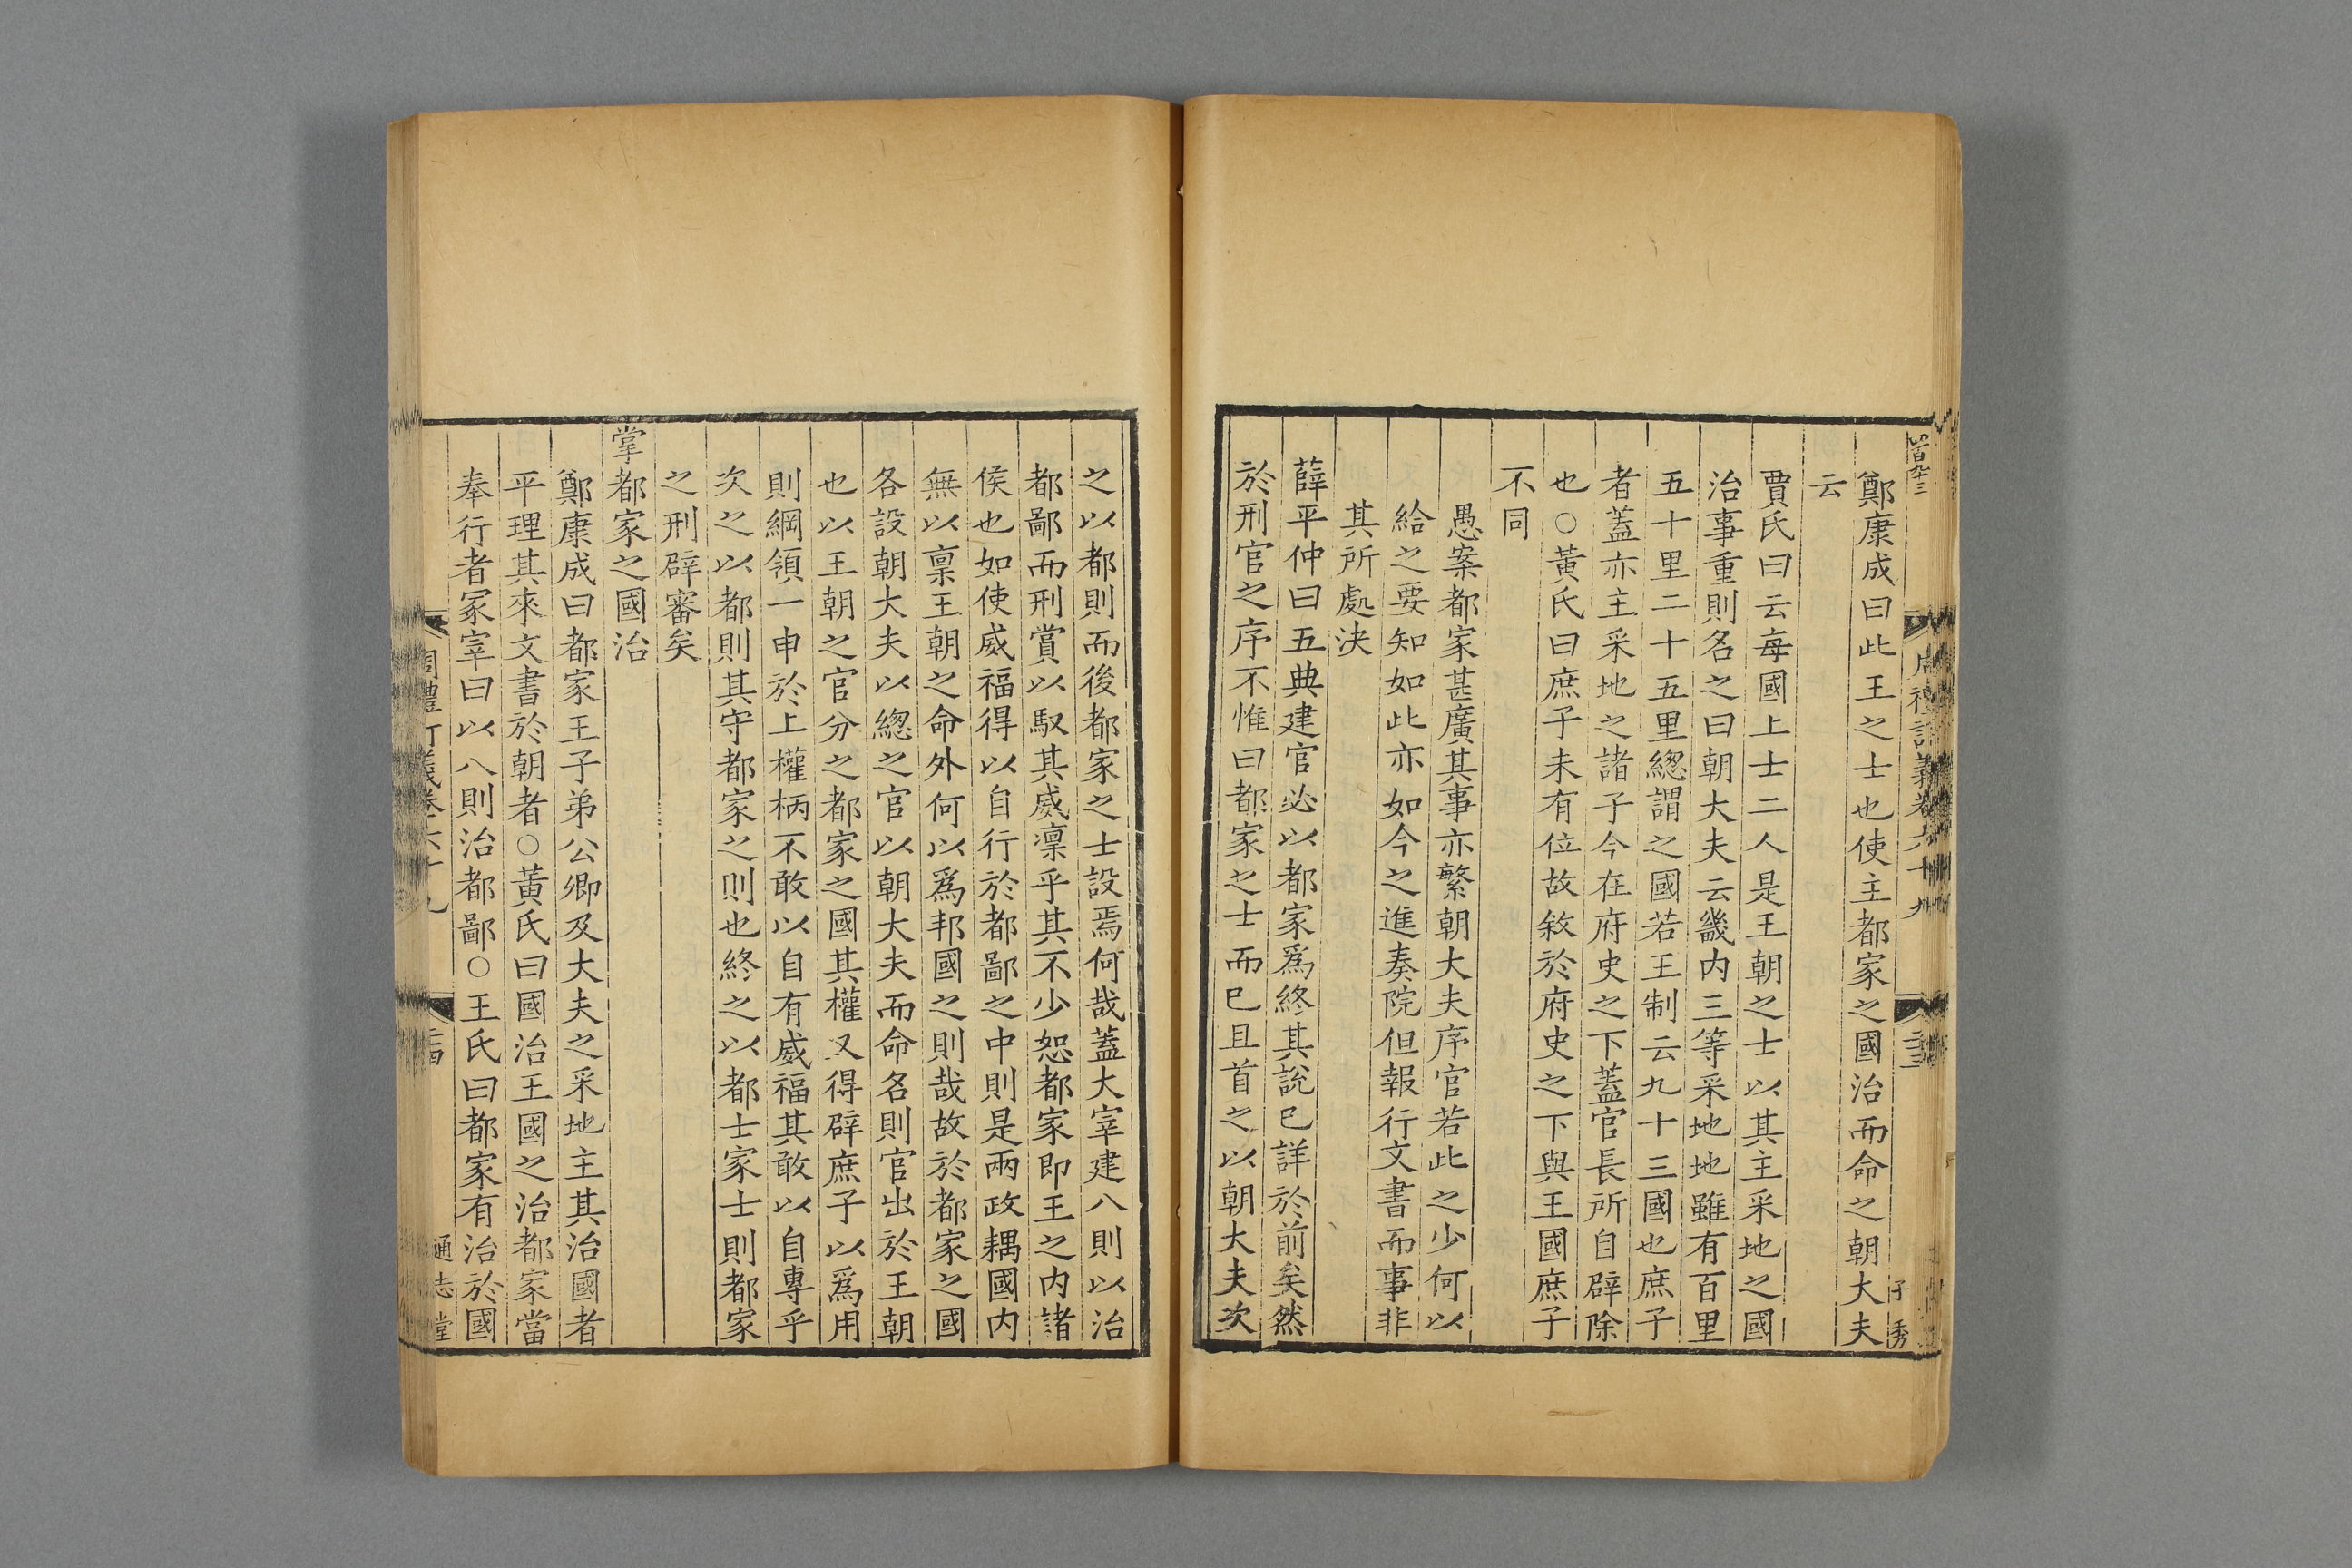 鄭康成曰此王之士也使主都家之國治而命之朝大夫
云
賈氏曰云每國上士二人是王朝之士以其主采地之國
治事重則名之曰朝大夫云畿内三等采地地雖有百里
五十里二十五里緫謂之國若王制云九十三國也庶子
者蓋亦主采地之諸子今在府史之下蓋官長所自辟除
也○黃氏曰庶子未有位故敘於府史之下與王國庶子
不同
愚案都家甚廣其事亦繁朝大夫序官若此之少何以
給之要知如此亦如今之進奏院但報行文書而事非
其所處決
薛平仲曰五典建官必以都家爲終其說已詳於前矣然
於刑官之序不惟曰都家之士而已且首之以朝大夫次
之以都則而後都家之士設焉何哉蓋大宰建八則以治
都鄙而刑賞以馭其威凛乎其不少恕都家即王之内諸
侯也如使威福得以自行於都鄙之中則是兩政耦國内
無以禀王朝之命外何以爲邦國之則哉故於都家之國
各設朝大夫以緫之官以朝大夫而命名則官出於王朝
也以王朝之官分之都家之國其權又得辟庶子以爲用
則綱領一申於上權柄不敢以自有威福其敢以自專乎
次之以都則其守都家之則也終之以都士家士則都家
之刑辟審矣
掌都家之國治
鄭康成曰都家王子弟公卿及大夫之采地主其治國者
平理其來文書於朝者○黃氏曰國治王國之治都家當
奉行者冢宰曰以八則治都鄙○王氏曰都家有治於國
周禮訂義卷六十九
通志堂
子秀